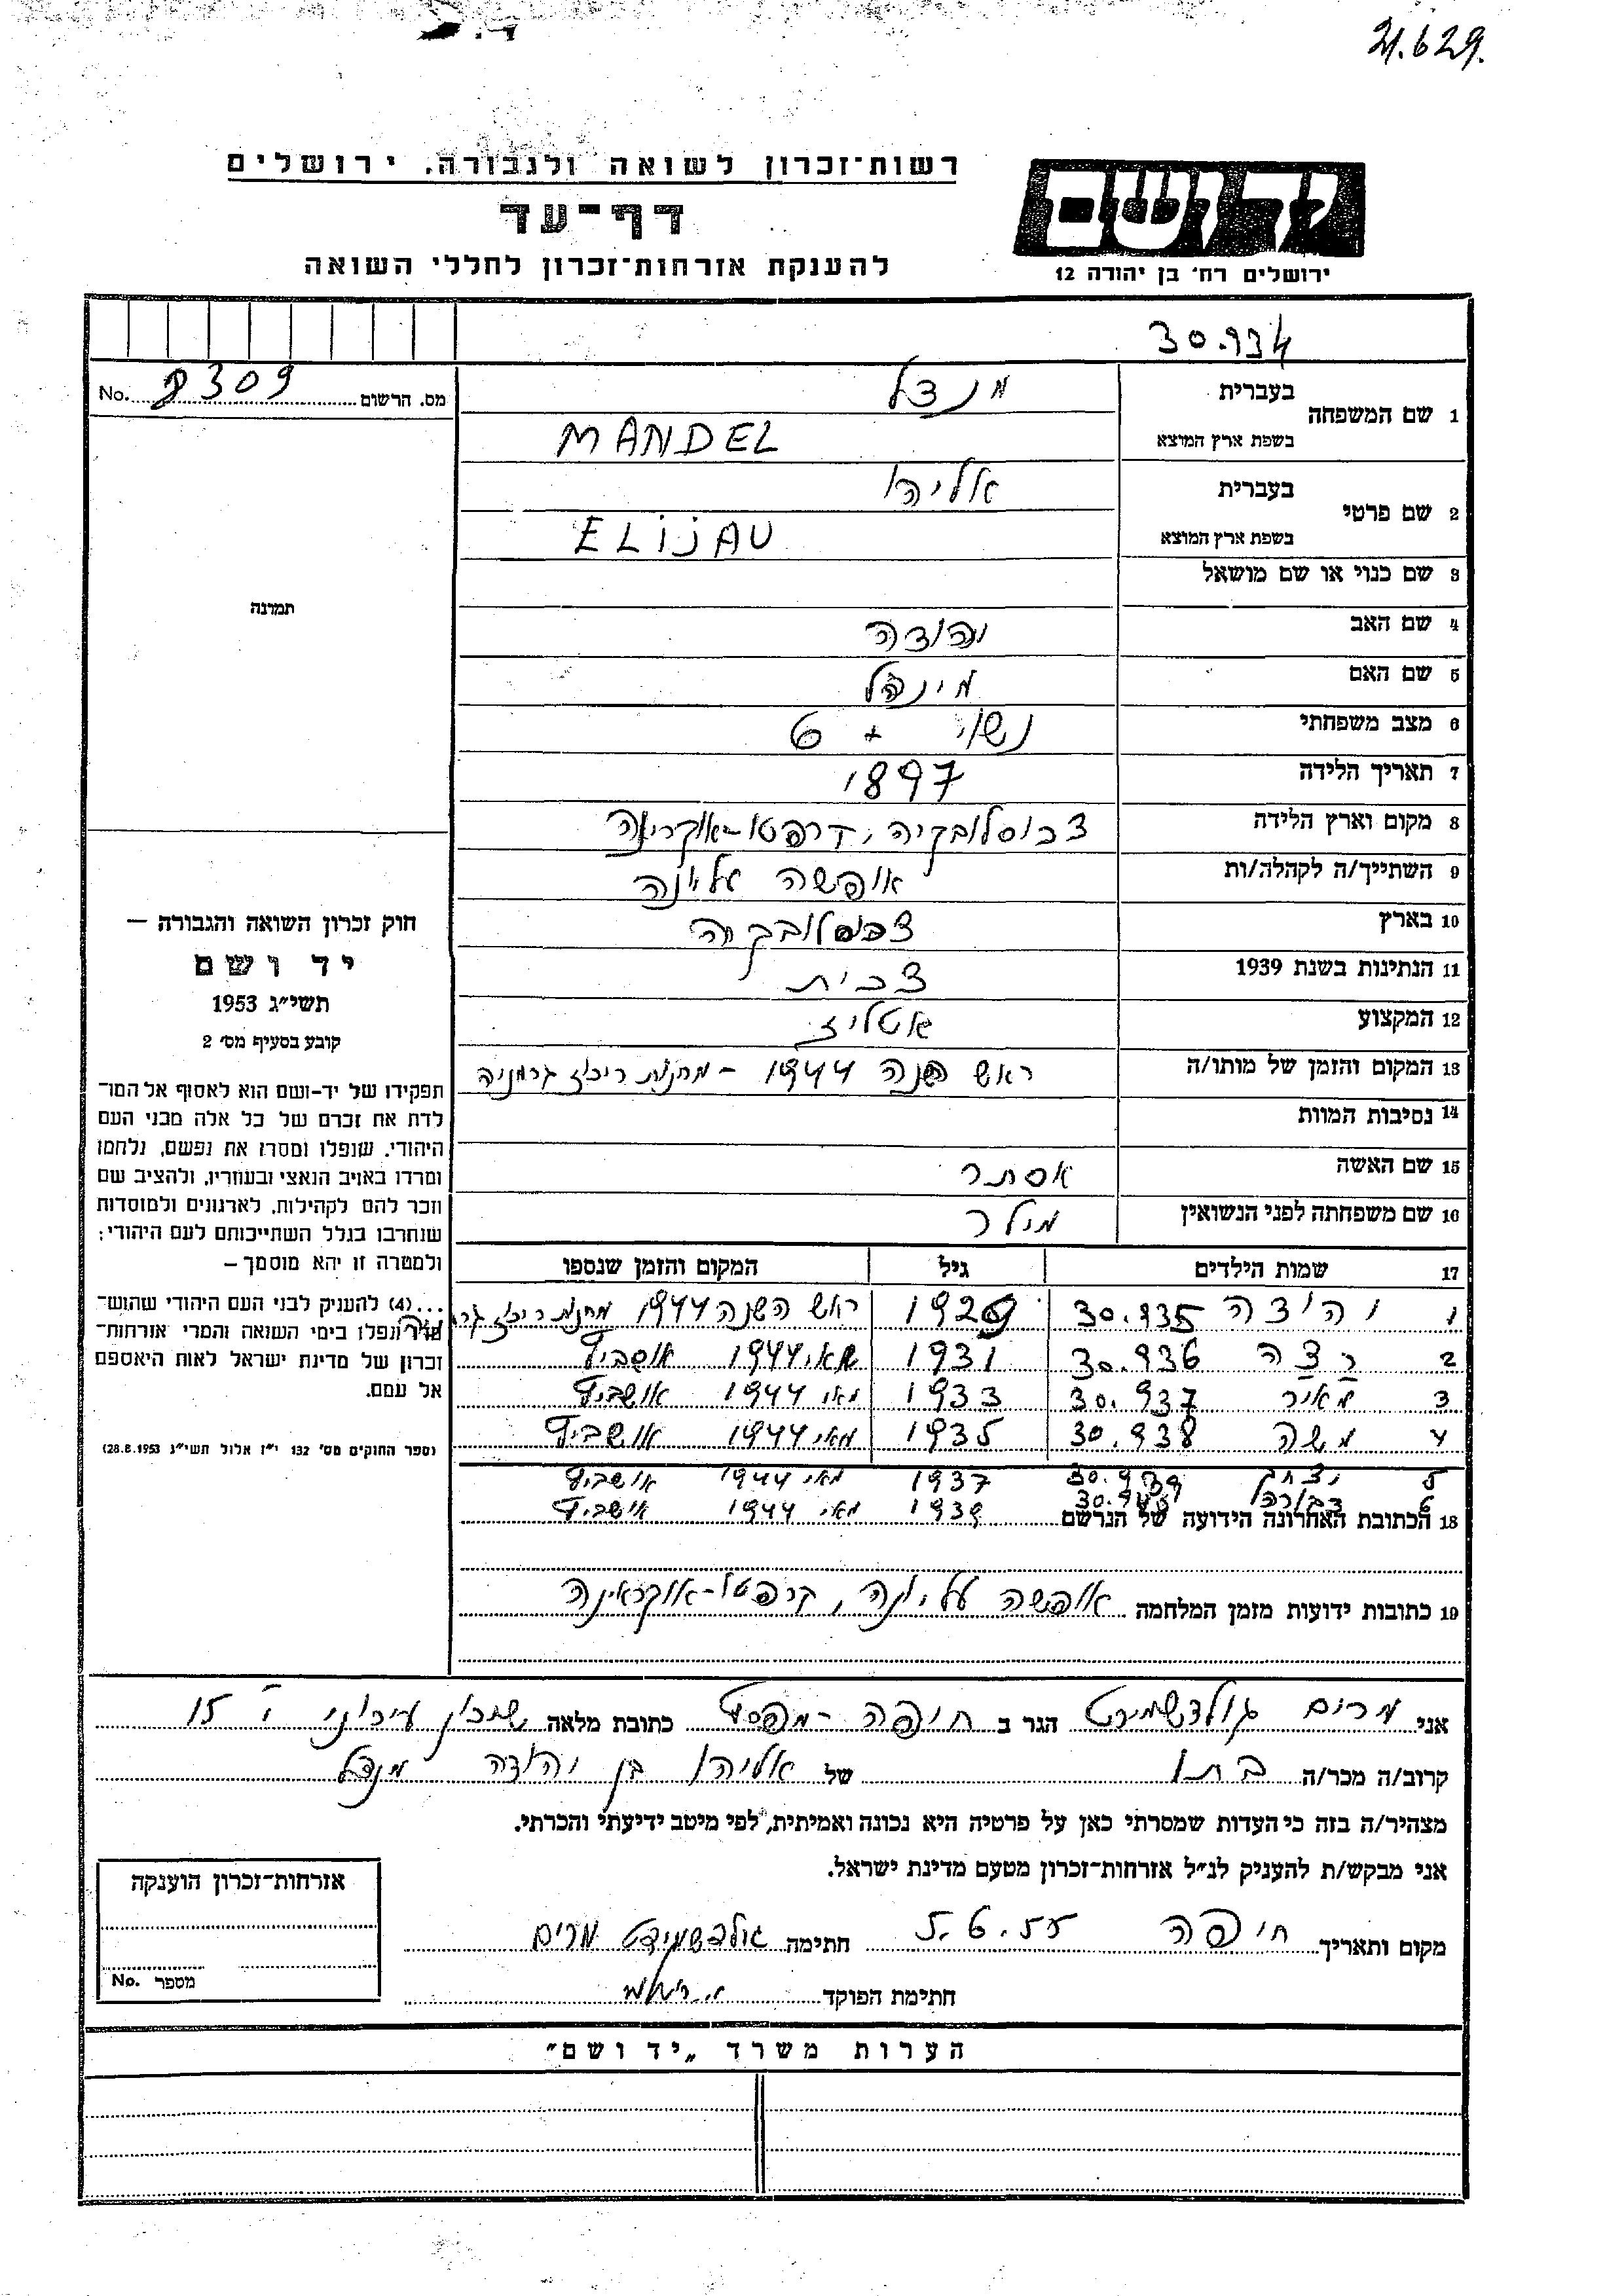 21.629.
רשות־זכרון לשואה ולגבורה. ירושלים
דף־עד
להענקת אזרחות־זכרון לחללי השואה
יד ושם
ירושלים רח' בן יהודה 12
30.934
מס. הרשום 8309 No.
תמונה
1 שם המשפחה
בעברית מנדל
בשפת ארץ המוצא MANDEL
2 שם פרטי
בעברית אליהו
בשפת ארץ המוצא ELIJAU
3 שם כנוי או שם מושאל
4 שם האב יהודה
5 שם האם מינדל
6 מצב משפחתי נשוי + 6
7 תאריך הלידה 1897
8 מקום וארץ הלידה צכוסלובקיה, קרפטו-אוקרינה
9 השתייך/ה לקהלה/ות אופשה עליונה
10 בארץ צכוסלובקיה
11 הנתינות בשנת 1939 צכית
12 המקצוע אטליז
13 המקום והזמן של מותו/ה ראש השנה 1944 - מחנות ריכוז גרמניה
14 נסיבות המוות
15 שם האשה אסתר
16 שם משפחתה לפני הנשואין מילר
17 שמות הילדים גיל המקום והזמן שנספו
1 יהודה 30.935 1929 ראש השנה 1944 מחנות ריכוז גרמניה
2 30.936 1931 מאי 1944 אושביץ
3 מאיר 30.937 1933 מאי 1944 אושביץ
4 משה 30.938 1935 מאי 1944 אושביץ
5 יצחק 30.939 1937 מאי 1944 אושביץ
6 דבורה 30.940 1939 מאי 1944 אושביץ
18 הכתובת האחרונה הידועה של הנרשם
19 כתובות ידועות מזמן המלחמה אופשה עליונה, קרפטו-אוקראינה
חוק זכרון השואה והגבורה —
יד ושם
תשי״ג 1953
קובע בסעיף מס׳ 2
תפקידו של יד-ושם הוא לאסוף אל המו־
לדת את זכרם של כל אלה מבני העם
היהודי. שנפלו ומסרו את נפשם, נלחמו
ומרדו באויב הנאצי ובעוזריו, ולהציב שם
וזכר להם לקהילות, לארגונים ולמוסדות
שנחרבו בגלל השתייכותם לעם היהודי;
ולמטרה זו יהא מוסמך —
...(4) להענק לבני העם היהודי שהוש־
מדו ונפלו בימי השואה והמרי אזרחות־
זכרון של מדינת ישראל לאות היאספם
אל עמם.
(ספר החוקים מס׳ 132 י״ז אלול תשי״ג 28.8.1953)
אני מרים גולדשמידט הגר ב חיפה כתובת מלאה שכון עירוני 15
קרוב/ה מכר/ה בתו של אליהו בן יהודה מנדל
מצהיר/ה בזה כי העדות שמסרתי כאן על פרטיה היא נכונה ואמיתית, לפי מיטב ידיעתי והכרתי.
אני מבקש/ת להעניק לנ״ל אזרחות-זכרון מטעם מדינת ישראל.
מקום ותאריך חיפה 5.6.55 חתימה גולדשמידט מרים
חתימת הפוקד
אזרחות-זכרון הוענקה
מספר No.
הערות משרד „יד ושם״